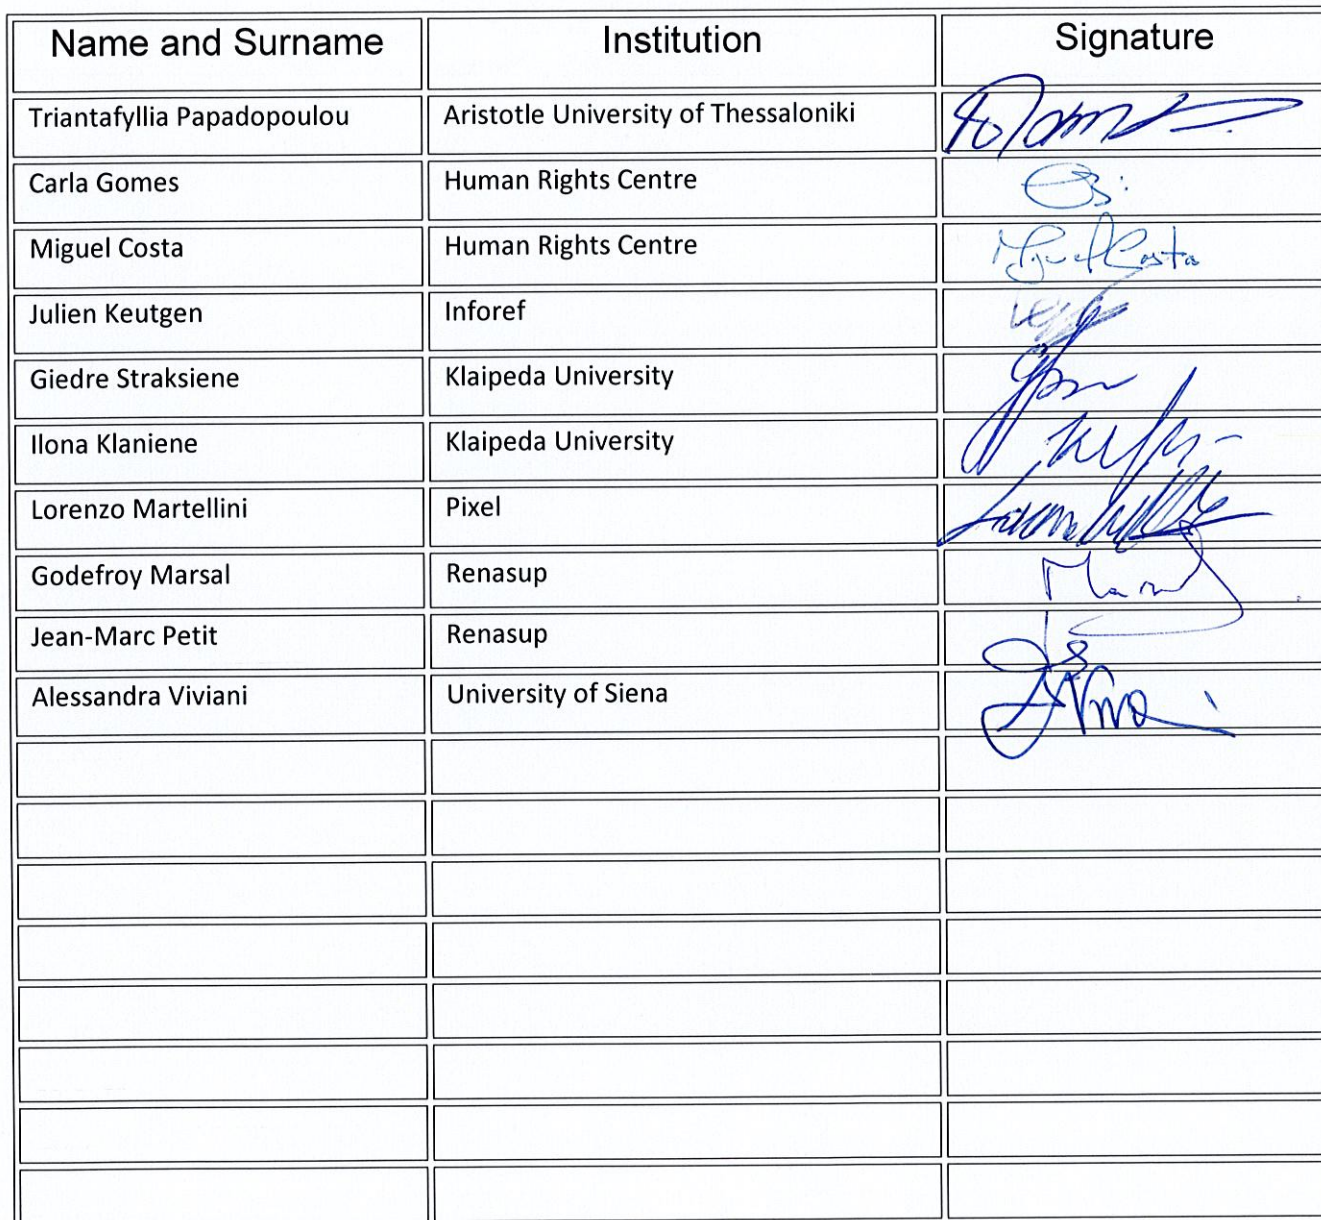 Name and Surname Institution Signature
Triantafyllia Papadopoulou Aristotle University of Thessaloniki
Carla Gomes Human Rights Centre
Miguel Costa Human Rights Centre Miguel Costa
Julien Keutgen Inforef
Giedre Straksiene Klaipeda University
Ilona Klaniene Klaipeda University
Lorenzo Martellini Pixel
Godefroy Marsal Renasup
Jean-Marc Petit Renasup
Alessandra Viviani University of Siena